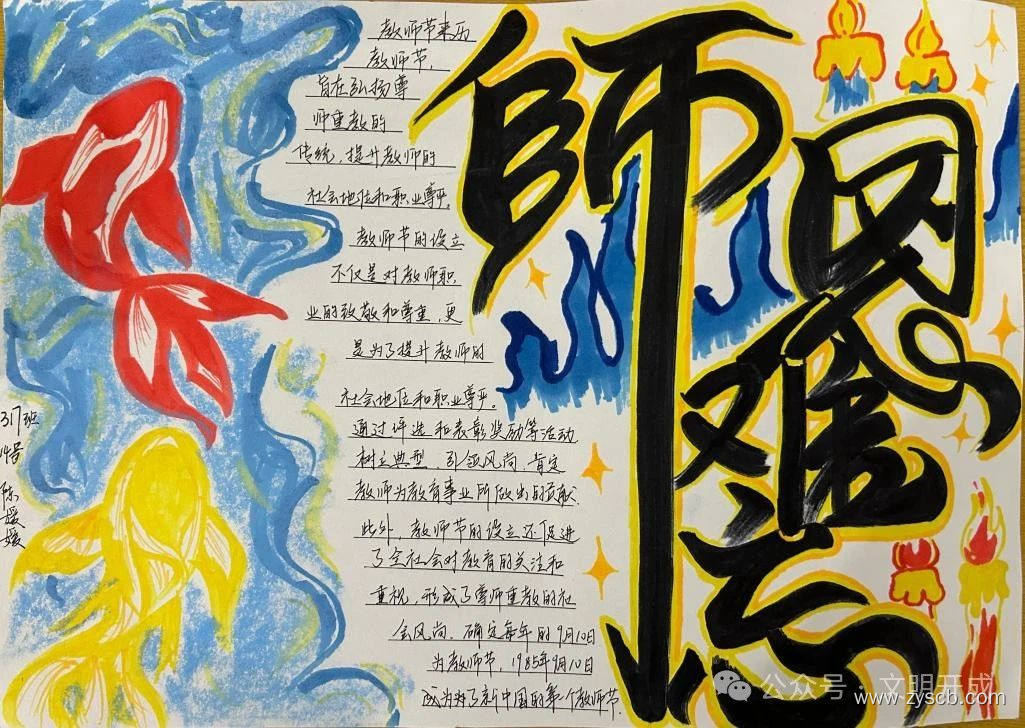 教师节来历
教师节
旨在弘扬尊
师重教的
传统，提升教师的
社会地位和职业尊严。
教师节的设立
不仅是对教师职
业的致敬和尊重，更
是为了提升教师的
社会地位和职业尊严。
通过评选和表彰奖励等活动
树立典型，引领风尚，肯定
教师为教育事业所做出的贡献.
此外，教师节的设立还促进
了全社会对教育的关注和
重视，形成了尊师重教的社
会风尚。确定每年的9月10日
为教师节，1985年9月10日
成为了新中国的第一个教师节.
師恩難忘
317班
陈媛媛
公众号·文明开成
www.zyscb.com